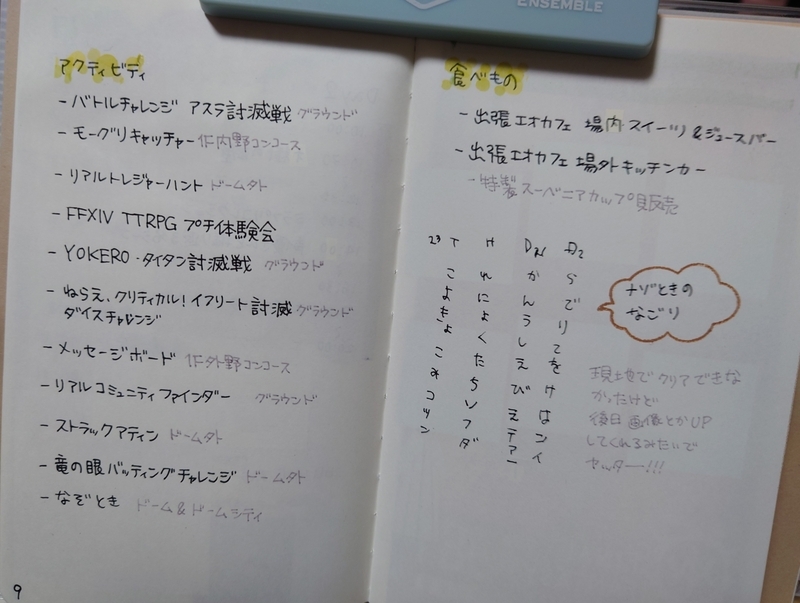 ENSEMBLE
アクティビティ
- バトルチャレンジ アスラ討滅戦 グラウンド
- モーグリキャッチャー 1F内野コンコース
- リアルトレジャーハント ドームソト
- FFXIV TTRPG プチ体験会
- YOKERO・タイタン討滅戦 グラウンド
- ねらえ、クリティカル!イフリート討滅 グラウンド
ダイスチャレンジ
- メッセージボード 1F外野コンコース
- リアルコミュニティファインダー グラウンド
- ストラックアティン ドームソト
- 竜の眼バッティングチャレンジ ドームソト
- なぞとき ドーム&ドームシティ
9
食べもの
- 出張エオカフェ 場内スイーツ&ジュースバー
- 出張エオカフェ 場外キッチンカー
- 特製スーベニアカップ販売
23 T H
こ れ か ら
よ に ん で
き よ う り
ょ く し て
こ た え を
み ち び け
コ ソ え は
ツ フ テ ン
ン ダ ア イ
ー
ナゾときの
なごり
現地でクリアできな
かったけど
後日画像とかUP
してくれるみたいで
ヤッター!!!